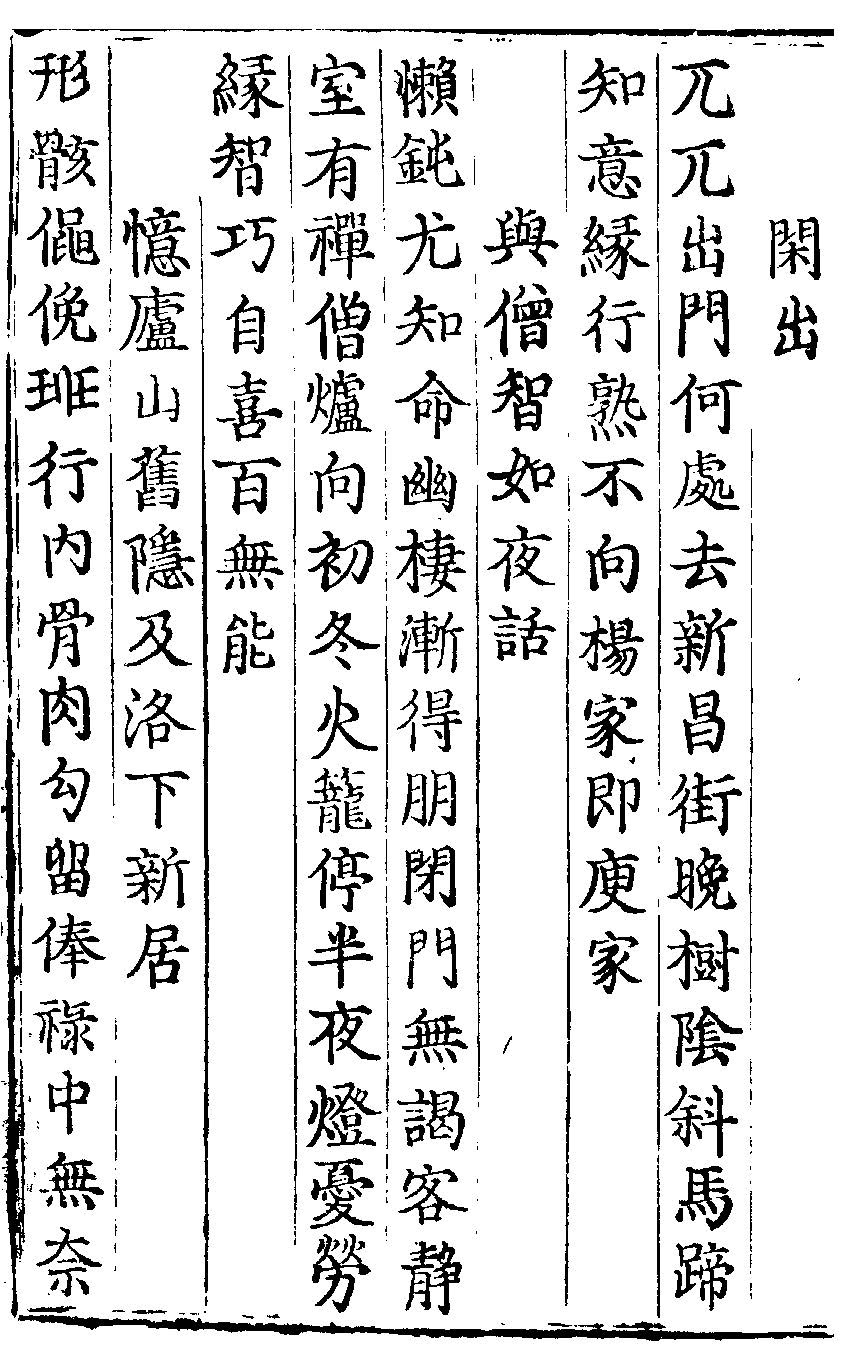 閑出
兀兀出門何處去新昌街晚樹陰斜馬蹄
知意縁行熟不向楊家即庾家
與僧智如夜話
懶鈍尤知命幽棲漸得朋閉門無謁客静
室有禪僧爐向初冬火籠停半夜燈憂勞
縁智巧自喜百無能
憶廬山舊隱及洛下新居
形骸僶俛班行内骨肉勾留俸禄中無奈